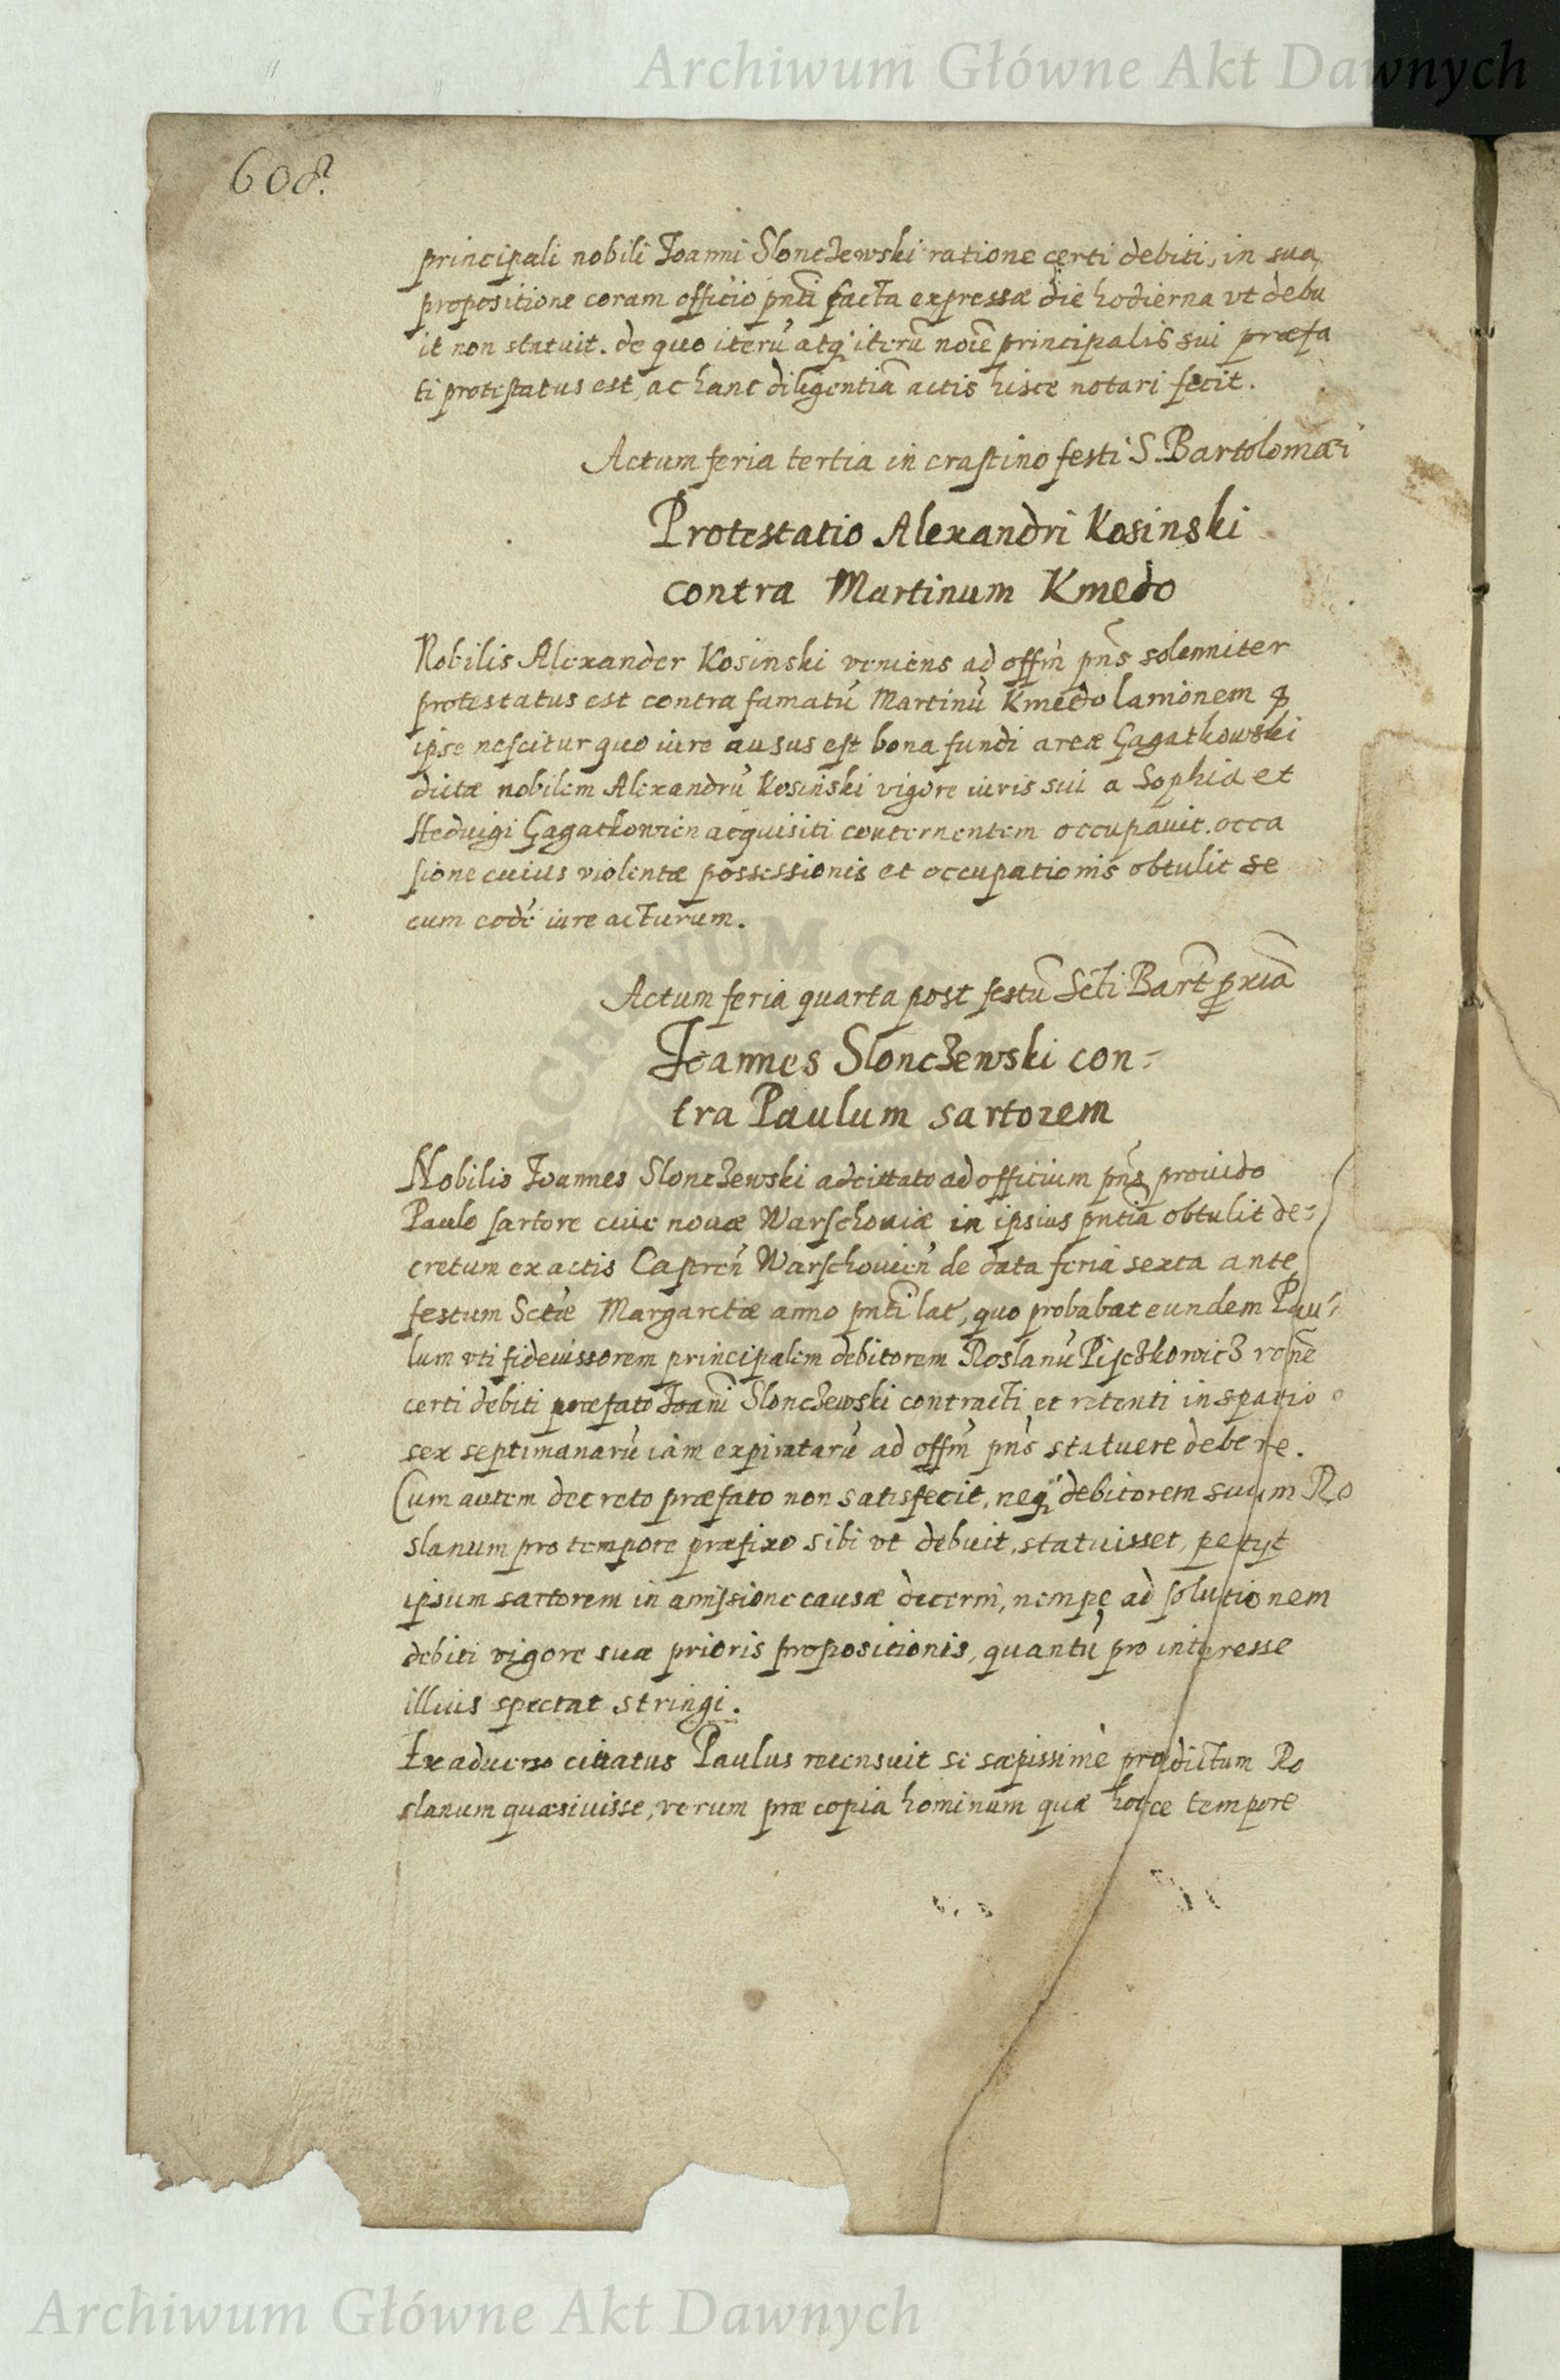 Archiwum Główne Akt Dawnych
608.
principali nobili Joanni Slonczewski ratione certi debiti, in sua
propositione coram officio pnti facta expressæ die hodierna vt debu
it non statuit. de quo iterũ atq iterũ noiẽ principalis sui præfa
ti protestatus est, ac hanc diligentiã actis hisce notari fecit.
Actum feria tertia in crastino festi S. Bartolomæi
Protestatio Alexandri Kosinski
contra Martinum Kmedo
Nobilis Alexander Kosinski veniens ad offm̃ pñs solenniter
protestatus est contra famatũ Martinũ Kmedo lanionem
ipse nescitur quo iure ausus est bona fundi areæ Gagatkowski
dictæ nobilem Alexandrũ Kosinski vigore iuris sui a Sophia et
Hedvigi acquisiti concernentem occupauit. occa
sione cuius violentæ possessionis et occupationis obtulit se
cum eodẽ iure acturum.
Actum feria quarta post festũ Scti Bart pxiã
Joannes Slonczewski con=
tra Paulum sartorem
Nobilis Joannes Slonczewski adcitato ad officium pñs prouido
Paulo sartore ciue nouæ Warschouiæ in ipsius pntia obtulit de=
cretum ex actis Castreñ Warschouieñ de data feria sexta ante
festum Sctæ Margaretæ anno pnti lat, quo probabat eundem Pau=
lum vti fideiussorem principalem debitorem Roslanũ Pisczkowicz roñe
certi debiti præfato Joañi Slonczewski contracti et retenti in spatio
sex septimanarũ iam expiratarũ ad offm̃ pñs statuere debere.
Cum autem decreto præfato non satisfecit, neq debitorem suum Ro
slanum pro tempore præfixo sibi vt debuit, statuisset, petijt
ipsum sartorem in amissione causæ decerni, nempe ad solutionem
debiti vigore suæ prioris propositionis, quantũ pro interesse
illius spectat stringi.
Ex aduerso citatus Paulus recensuit se sæpissimè prædictum Ro
slanum quæsiuisse, verum præ copia hominum quæ hocce tempore
Archiwum Główne Akt Dawnych